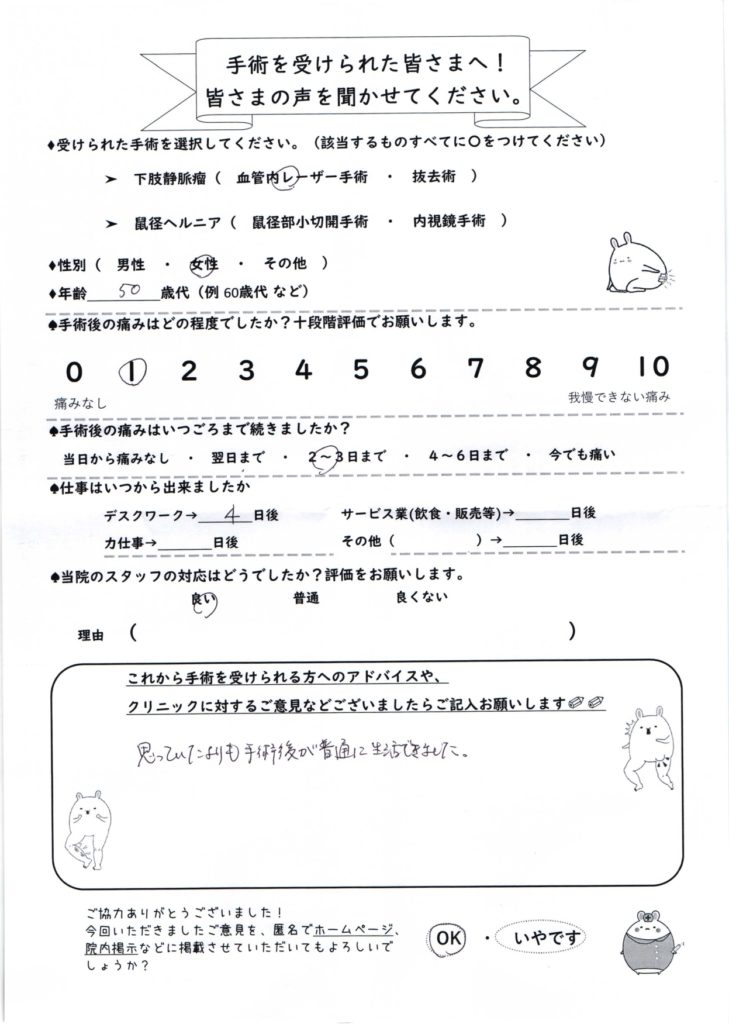 手術を受けられた皆さまへ！
皆さまの声を聞かせてください。
♦受けられた手術を選択してください。（該当するものすべてに〇をつけてください）
➤ 下肢静脈瘤（ 血管内レーザー手術 ・ 抜去術 ）
➤ 鼠径ヘルニア（ 鼠径部小切開手術 ・ 内視鏡手術 ）
♦性別（ 男性 ・ 女性 ・ その他 ）
♦年齢 50 歳代（例 60歳代 など）
♠手術後の痛みはどの程度でしたか？十段階評価でお願いします。
0 1 2 3 4 5 6 7 8 9 10
痛みなし 我慢できない痛み
♠手術後の痛みはいつごろまで続きましたか？
当日から痛みなし ・ 翌日まで ・ 2～3日まで ・ 4～6日まで ・ 今でも痛い
♠仕事はいつから出来ましたか
デスクワーク→ 4 日後 サービス業(飲食・販売等)→______日後
力仕事→______日後 その他（ ）→______日後
♠当院のスタッフの対応はどうでしたか？評価をお願いします。
良い 普通 良くない
理由 （ ）
これから手術を受けられる方へのアドバイスや、
クリニックに対するご意見などございましたらご記入お願いします
思っていたよりも手術後が普通に生活できました。
ご協力ありがとうございました！
今回いただきましたご意見を、匿名でホームページ、
院内掲示などに掲載させていただいてもよろしいで
しょうか？
OK ・ いやです